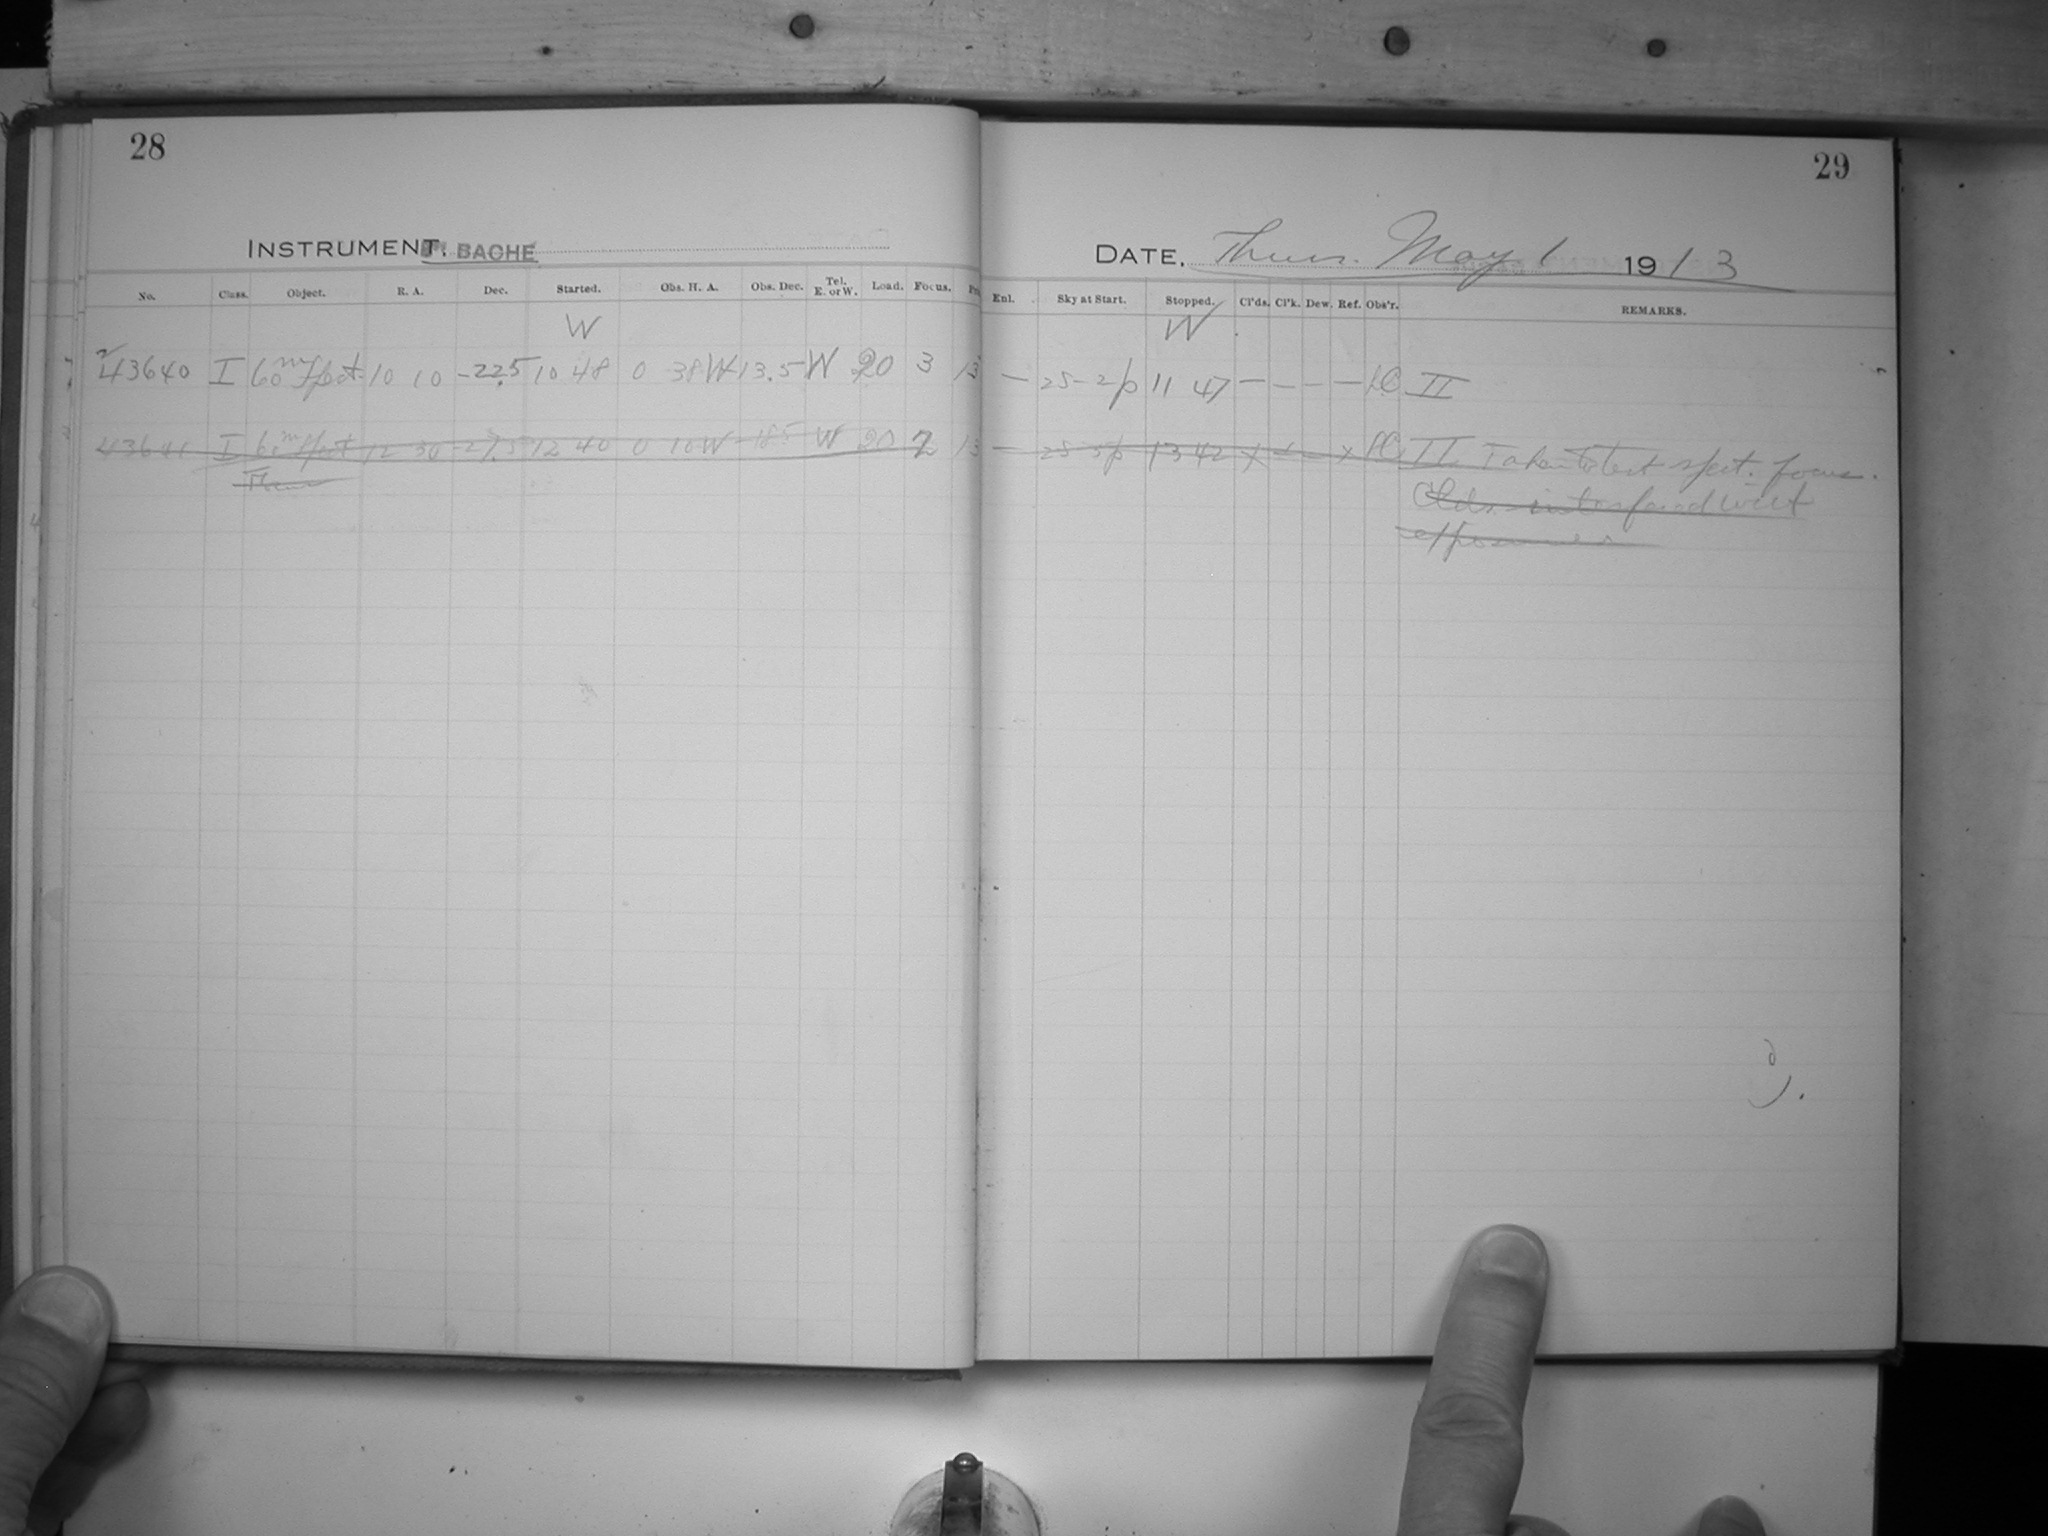 28
INSTRUMENT. BACHE
No. Class. Object. R. A. Dec. Started. Obs. H. A. Obs. Dec. Tel. E. or W. Load. Focus.
W
43640 I 60m spect. 10 10 -22.5 10 48 0 38 W 13.5 W 20 3 13
43641 I 60m spect 12 30 -27.5 12 40 0 10 W 18.5 W 20 2 13
29
DATE. Thurs. May 1 1913
Enl. Sky at Start. Stopped. Cl'ds. Cl'k. Dew. Ref. Obs'r. REMARKS.
W
— 25-2p 11 47 — — — — II
— 25 5p 13 42 x — — x II Taken to test spect. focus.
Clds. interfered with
exposure